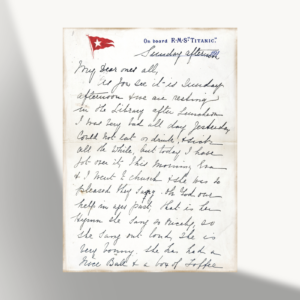 On board R·M·S "TITANIC."
Sunday afternoon
My Dear ones all,
As you see it is Sunday
afternoon & we are resting
in the Library after Luncheon
I was very bad all day yesterday
could not eat or drink, & sick
all the while, but today I have
got over it, This morning Eva
& I went to church & she was so
pleased they sang, Oh God our
help in ages past, that is her
Hymn she sang so nicely, so
she sang out loud, She is
very bonny, she has had a
nice Ball & a box of Toffee